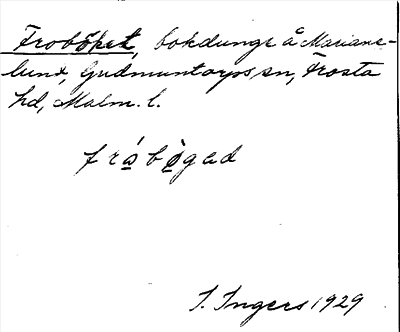 Froböket, bokdunge å Marians-
lund, Gudmuntorps sn, Frosta
hd, Malm. l.
fråbögad
I. Ingers 1929